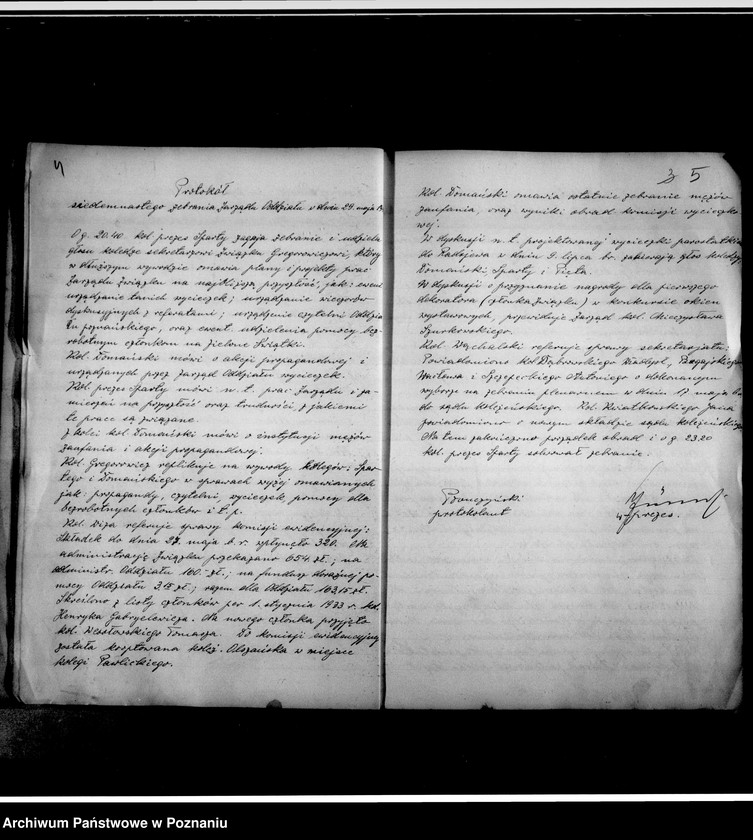 4
Protokół
siedemnastego zebrania Zarządu Oddziału w dniu 29 maja
O g. 20.40 kol. prezes Sparty zagaja zebranie i udziela
głosu koledze sekretarzowi Związku Gregorowiczowi, który
w dłuższym wywodzie omawia plany i projekty prac
Zarządu Związku na najbliższą przyszłość, jak: ewent.
urządzanie tanich wycieczek; urządzanie wieczorów
dyskusyjnych z referatami; urządzenie czytelni Oddzia
łu poznańskiego, oraz ewent. udzielenia pomocy bez-
robotnym członkom na Zielone Świątki.
Kol. Domański mówi o akcji propagandowej i
urządzanych przez Zarząd Oddziału wycieczek.
Kol. prezes Sparty mówi n. t. prac Zarządu i za-
mierzeń na przyszłość oraz trudności, z jakiemi
te prace są związane.
Z kolei kol. Domański mówi o instytucji mężów
zaufania i akcji propagandowej.
Kol. Gregorowicz replikuje na wywody kolegów: Spar-
tego i Domańskiego w sprawach wyżej omawianych
jak: propagandy, czytelni, wycieczek, pomocy dla
bezrobotnych członków i t. p.
Kol. Wiza referuje sprawy komisji ewidencyjnej:
Składek do dnia 27 maja b. r. wpłynęło 320. Na
administrację Związku przekazano 654 zł.; na
administr. Oddziału 160.- zł.; na fundusz doraźnej po-
mocy Oddziału zł.; razem dla Oddziału zł.
Skreślono z listy członków per 1. stycznia 1933 r. kol.
Henryka Gabryelewicza. Na nowego członka przyjęto
kol. Wesołowskiego Tomasza. Do komisji ewidencyjnej
została kooptowana kolеż. Olszańska w miejsce
kolegi Pawlickiego.
3 5
Kol. Domański omawia ostatnie zebranie mężów
zaufania, oraz wyniki obrad komisji wycieczko
wej.
W dyskusji n. t. projektowanej wycieczki parostatkiem
do Radojewa w dniu 9. lipca br. zabierają głos koledzy
Domański, Sparty i Pięta.
W dyskusji o przyznanie nagrody dla pierwszego
dekoratora (członka Związku) w konkursie okien
wystawowych, przewiduje Zarząd kol. Mieczysława
Szurkowskiego.
Kol. Węchalski referuje sprawy sekretarjatu:
Powiadomiono kol. Dąbrowskiego Rudolfa, Pągajskiego
Wacława i Szczepeckiego Antoniego o dokonanym
wyborze na zebraniu plenarnem w dniu 17 maja b.
do sądu koleżeńskiego. Kol. Kwiatkowskiego Jana
powiadomiono o nowym składzie sądu koleżeńskiego
Na tem zakończono porządek obrad i o g. 23.20
kol. prezes Sparty solwował zebranie.
protokolant
prezes.
Archiwum Państwowe w Poznaniu